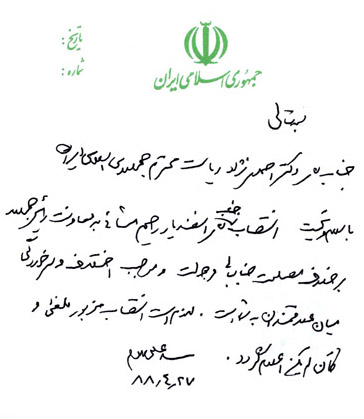 تاریخ :
شماره :
جمهوری اسلامی ایران
بسمه تعالی
جناب آقای دکتر احمدی نژاد ریاست محترم جمهوری اسلامی ایران
با سلام و تحیت انتصاب جناب آقای اسفندیار رحیم مشائی به معاونت رئیس جمهور
برخلاف مصلحت جنابعالی و دولت و موجب اختلاف و سرخوردگی
میان علاقمندان به شما است . لازم است انتصاب مزبور ملغی و
کان لم یکن اعلام گردد .
سید علی
۸۸,۴,۲۷